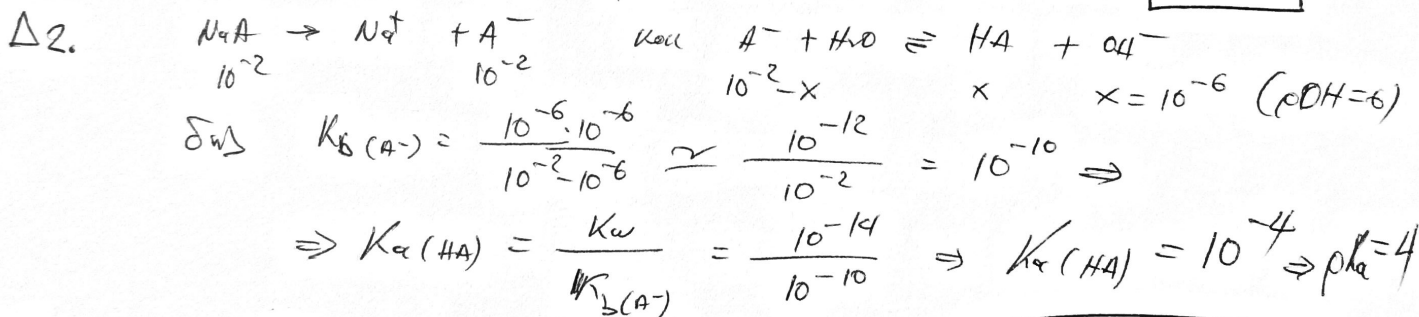 Δ2. NaA → Na⁺ + A⁻ και A⁻ + H₂O ⇌ HA + OH⁻
10⁻² 10⁻² 10⁻²-x x x = 10⁻⁶ (pOH=6)
K_b(A⁻) = (10⁻⁶·10⁻⁶)/(10⁻²-10⁻⁶) ≃ 10⁻¹²/10⁻² = 10⁻¹⁰ ⇒
⇒ Ka(HA) = Kw/K_b(A⁻) = 10⁻¹⁴/10⁻¹⁰ ⇒ Ka(HA) = 10⁻⁴ ⇒ pKa=4